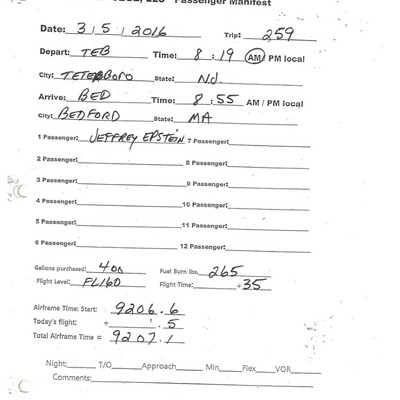 LLC - Passenger Manifest
Date: 3 | 5 | 2016 Trip: 259
Depart: TEB Time: 8 : 19 AM / PM local
City: TETERBORO State: NJ.
Arrive: BED Time: 8 : 55 AM / PM local
City: BEDFORD State: MA
1 Passenger: JEFFREY EPSTEIN 7 Passenger:
2 Passenger: 8 Passenger:
3 Passenger: 9 Passenger:
4 Passenger: 10 Passenger:
5 Passenger: 11 Passenger:
6 Passenger: 12 Passenger:
Gallons purchased: 400 Fuel Burn lbs. 265
Flight Level: FL160 Flight Time: +35
Airframe Time: Start: 9206.6
Today's flight: + .5
Total Airframe Time = 9207.1
Night: T/O Approach Min Flex VOR
Comments: